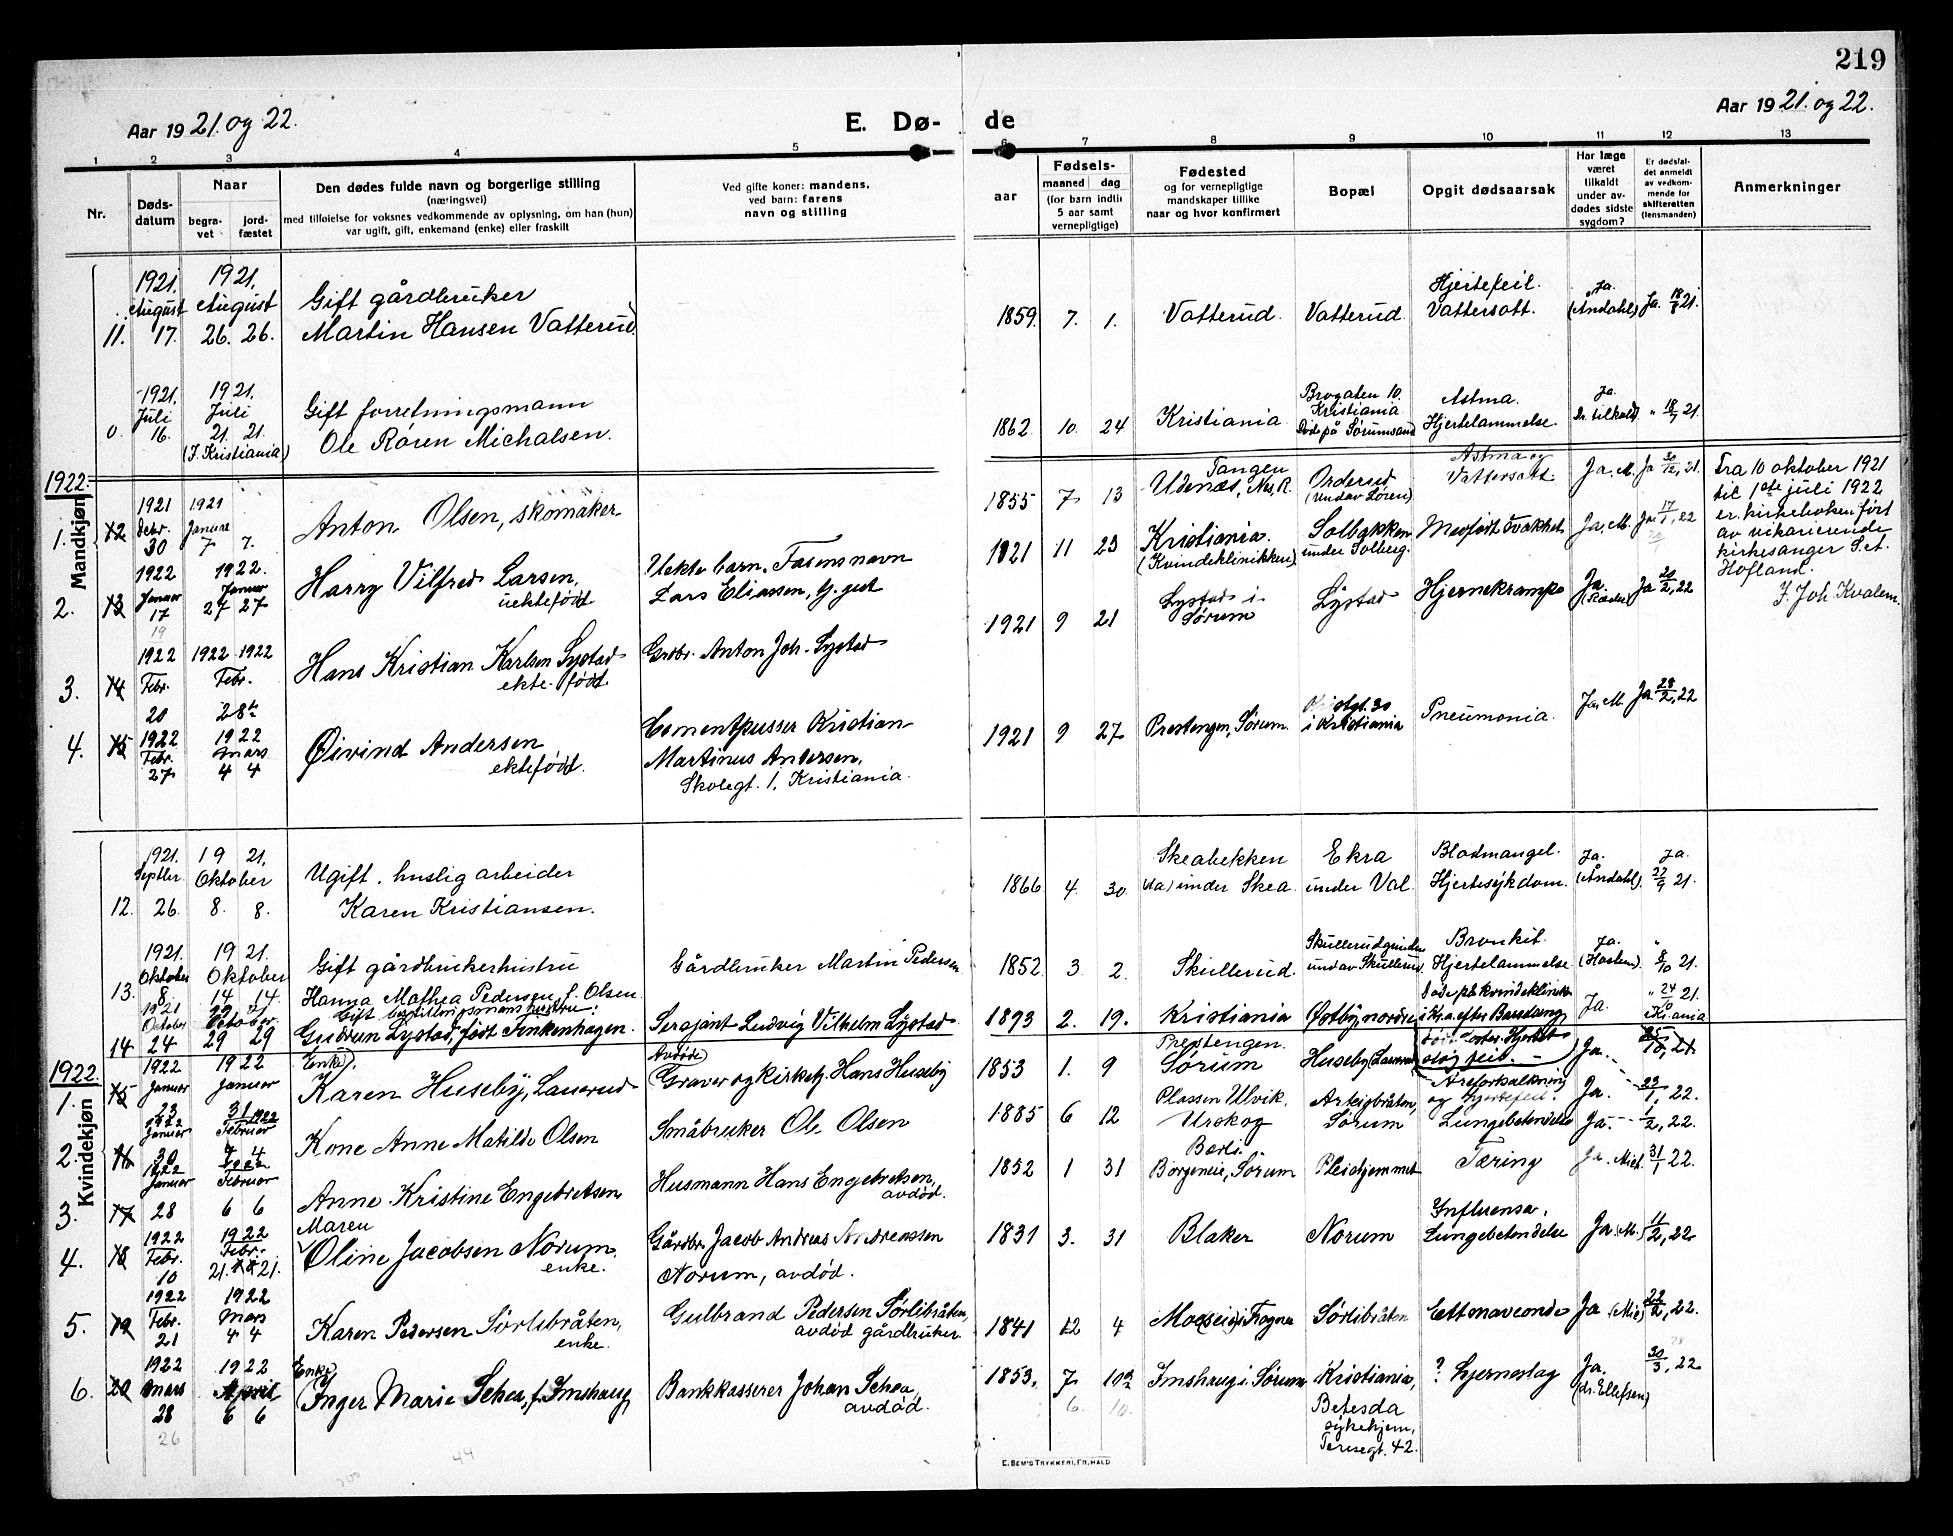 219
Aar 19 21. og 22.
E. Dø- de
Aar 19 21. og 22.
1 2 3 4 5 6 7 8 9 10 11 12 13
Nr.
Døds-
datum
Naar
begra-
vet
jord-
fæstet
Den dødes fulde navn og borgerlige stilling
(næringsvei)
med tilføielse for voksnes vedkommende av oplysning, om han (hun)
var ugift, gift, enkemand (enke) eller fraskilt
Ved gifte koner: mandens,
ved barn: farens
navn og stilling
Fødsels-
aar
maaned dag
(for barn indtil
5 aar samt
vernepligtige)
Fødested
og for vernepligtige
mandskaper tillike
naar og hvor konfirmert
Bopæl
Opgit dødsaarsak
Har læge
været
tilkaldt
under av-
dødes sidste
sygdom?
Er dødsfal-
det anmeldt
av vedkom-
mende for
skifteretten
(lensmanden)
Anmerkninger
Mandkjøn
11. 1921. August 17. 1921. August 26. 26.
Gift gårdbruker
Martin Hansen Vatterud.
1859. 7. 1. Vatterud. Vatterud
Hjertefeil.
Vattersott.
Ja.
(Åndahl) Ja. 18/8 21.
0. 1921. Juli 16. 1921. Juli 21. 21.
(I. Kristiania)
Gift forretningsmann
Ole Røren Michalsen.
1862. 10. 24 Kristiania
Brogaten 10.
Kristiania
Døde på Sørumsand
Astma.
Hjertelammelse.
Ja.
Dr. tilkaldt " 18/7 21.
1922.
1. 12 1921 Debr. 30 1921 Januar 7 7.
Anton Olsen, skomaker
1855 7 13
Tangen
Udenæs, Nes, R.
Ordersud
(undav Søren)
Astma og
Vattersott.
Ja. M. Ja 30/12, 21.
Fra 10 oktober 1921
til 1ste juli 1922
er kirkeboken ført
av vikarierende
kirkesanger S. et.
Hofland.
J. Joh. Kvalem.
2. 13 1922 Januar 17 19 1922. Januar 27 27
Harry Vilfred Larsen,
uektefødt
Uekte barn. Farens navn
Lars Eliassen, g. gut
1921 11 23
Kristiania.
(Kvindeklinikken)
Solbakken
under Solberg.
Medfødt svakhet Ja. M. Ja. 17/1, 22
3. 14 1922 Febr. 20 1922 1922 Febr. 28de
Hans Kristian Karlsen Lystad
ekte født.
Grdbr. Anton Joh. Lystad
1921 9 21
Lystad i
Sørum
Lystad Hjernekrampe Ja Ja 20/2, 22
4. 15 1922 Febr. 27 1922 Mars 4 4
Øivind Andersen
ektefødt.
Cementpusser Kristian
Martinus Andersen,
Skolegt. 1, Kristiania.
1921 9 27 Prestengen, Sørum.
i Kristiania
Pneumonia. Ja. M. Ja 28/2, 22
Kvindekjøn
12. 1921. Septbr. 26. 1921. Oktober 8. 8.
Ugift. huslig arbeider
Karen Kristiansen.
1866 4. 30.
Skeabekken
under Skea.
Ekra
under Val.
Blodmangel.
Hjertesykdom.
Ja.
(Åndahl).
Ja.
27/9 21.
13. 1921. Oktober 8. 1921. Oktober 14 14.
Gift gårdbrukerhustru
Hanna Mathea Pedersen, f. Olsen
Gårdbruker Martin Pedersen
1852. 3. 2. Skullerud.
Skullerudgrinden
undav Skullerud.
Bronkit.
Hjertelammelse
Ja. " 8/10 21.
14 1921 October 24 1921 October. 29 29
Gudrun Lystad, født Finkenhagen.
Sersjant Ludvig Vilhelm Lystad
1893 2. 19. Kristiania Østby, nordre
Døde på kvindeklinikk
i Kr.a. efter Barselseng,
Ja. " 24/10 21.
Kr.ania
1922.
1. 15 1922 Januar 23 1922 Januar 31
Enke,
Karen Huseby, Lauerud
Avdøde
Graver og kirketj. Hans Huseby
1853 1. 9
Prestengen.
Sørum
Huseby, Lauerud
Areforkalkning
og hjertefeil.
Ja. 23/1, 22.
2. 16 1922 Januar 30 1922 Februar 4 4
Kone Anne Matilde Olsen
Småbruker Ole Olsen
1885 6 12
Plassen Ulvik.
Urskog
Arteigbråten,
Sørum
Lungebetendelse Ja. 1/2, 22.
3. 17 1922 Januar 28 1922 Februar 6 6
Anne Kristine Engebretsen
Husmann Hans Engebretsen,
avdød.
1852 1 31
Borgeneie, Sørum Pleiehjemmet Tæring Ja. Mich. 31/1 22.
4. 18 1922 Febr. 10 1922 Febr. 21. 21.
Maren
Oline Jacobsen Norum,
enke.
Gårdbr. Jacob Andreas Andreassen
Norum, avdød.
1831 3. 31 Blaker Norum
Influensa,
Lungebetendelse
Ja (M.) 11/2, 22
5. 19 1922 Febr. 21 1922 Mars 4 4
Karen Pedersen Sørlibråten,
enke.
Gulbrand Pedersen Sørlibråten,
avdød gårdbruker.
1841 12 4 Moe(seie) i Frogner Sørlibråten Ettmaveonde Ja (Mic) 22/2, 22.
6. 20 1922 Mars 28 26 1922 April 6 6
Enke,
Inger Marie Schea, f. Imshaug
Bankkasserer Johan Schea,
avdød.
1853, 7 10
6. 10.
Imshaug i Sørum
Kristiania,
Betesda
sykehjem,
Teresegt. 42.
? hjerneslag
Ja.
(dr. Ellefsen)
30/3, 22
44
E. SEM'S TRYKKERI, FR. HALD